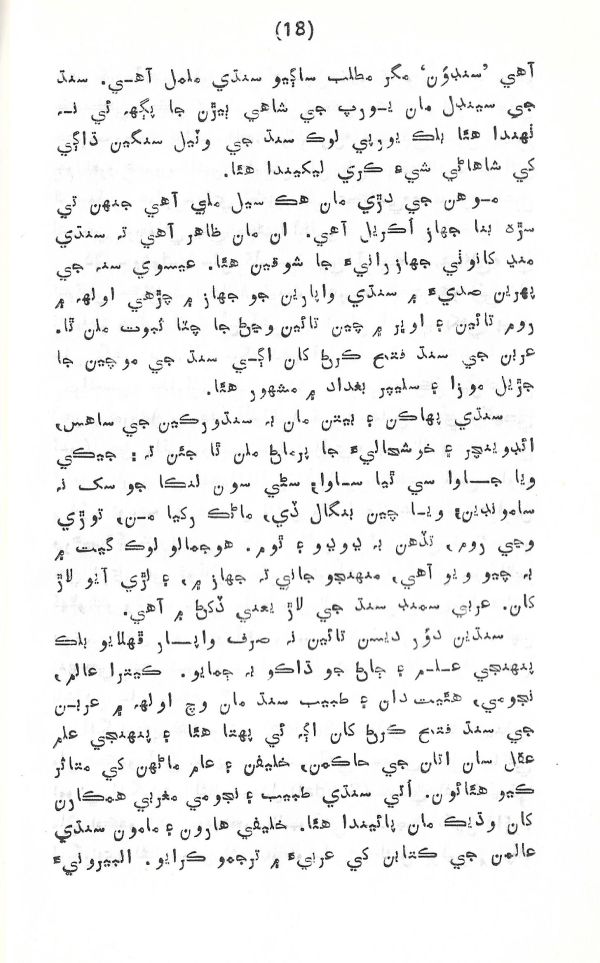 (18)
آهي ’سنڊؤن‘ مگر مطلب ساڳيو سنڌي ململ آهي. سنڌ
جي سينڊل مان يورپ جي شاهي ٻيڙن جا پڳهه ئي نه
ٺهندا هئا بلڪ يورپي لوڪ سنڌ جي وٽيل سنگين ڌاڳي
کي شاهاڻي شيءِ ڪري ليکيندا هئا.
موهن جي دڙي مان هڪ سيل ملي آهي جنهن تي
سڙهه بنا جهاز اُڪريل آهي. ان مان ظاهر آهي ته سنڌي
منڍ کانوٺي جهازرانيءَ جا شوقين هئا. عيسوي سنه جي
پهرين صديءَ ۾ سنڌي واپارين جو جهاز ۾ چڙهي اولهه ۾
روم تائين ۽ اوڀر ۾ چين تائين وڃڻ جا چٽا ثبوت ملن ٿا.
عربن جي سنڌ فتح ڪرڻ کان اڳي سنڌ جي موچين جا
جڙيل موزا ۽ سليپر بغداد ۾ مشهور هئا.
سنڌي پهاڪن ۽ بيتن مان به سنڌورڪين جي ساهس،
ائڊوينچر ۽ خوشحاليءَ جا پرماڻ ملن ٿا جئن ته : جيڪي
ويا جاوا سي ٿيا ساوا؛ سڻي سون لنڪا جو سڪ نه
سامونڊين؛ ويا چين بنگال ڏي، ماڻڪ رکيا من، توڙي
وڃي روم، تڏهن به ڍوڍو ۽ ٿوم. هوجمالو لوڪ گيت ۾
به چيو ويو آهي، منهنجو جاني ته جهاز ۾، ۽ لڙي آيو لاڙ
کان. عربي سمنڊ سنڌ جي لاڙ يعني ڏکڻ ۾ آهي.
سنڌين دؤر ديسن تائين نه صرف واپار ڦهلايو بلڪ
پنهنجي علم ۽ ڄاڻ جو ڌاڪو به ڄمايو. ڪيترا عالم،
نجومي، هيئيت دان ۽ طبيب سنڌ مان وڃ اولهه ۾ عربن
جي سنڌ فتح ڪرڻ کان اڳ ئي پهتا هئا ۽ پنهنجي علم
عقل سان اتان جي حاڪمن، خليفن ۽ عام ماڻهن کي متاثر
ڪيو هئائون. اُتي سنڌي طبيب ۽ نجومي مغربي همڪارن
کان وڌيڪ مان پائيندا هئا. خليفي هارون ۽ مامون سنڌي
عالمن جي ڪتابن کي عربيءَ ۾ ترجمو ڪرايو. البيرونيءَ